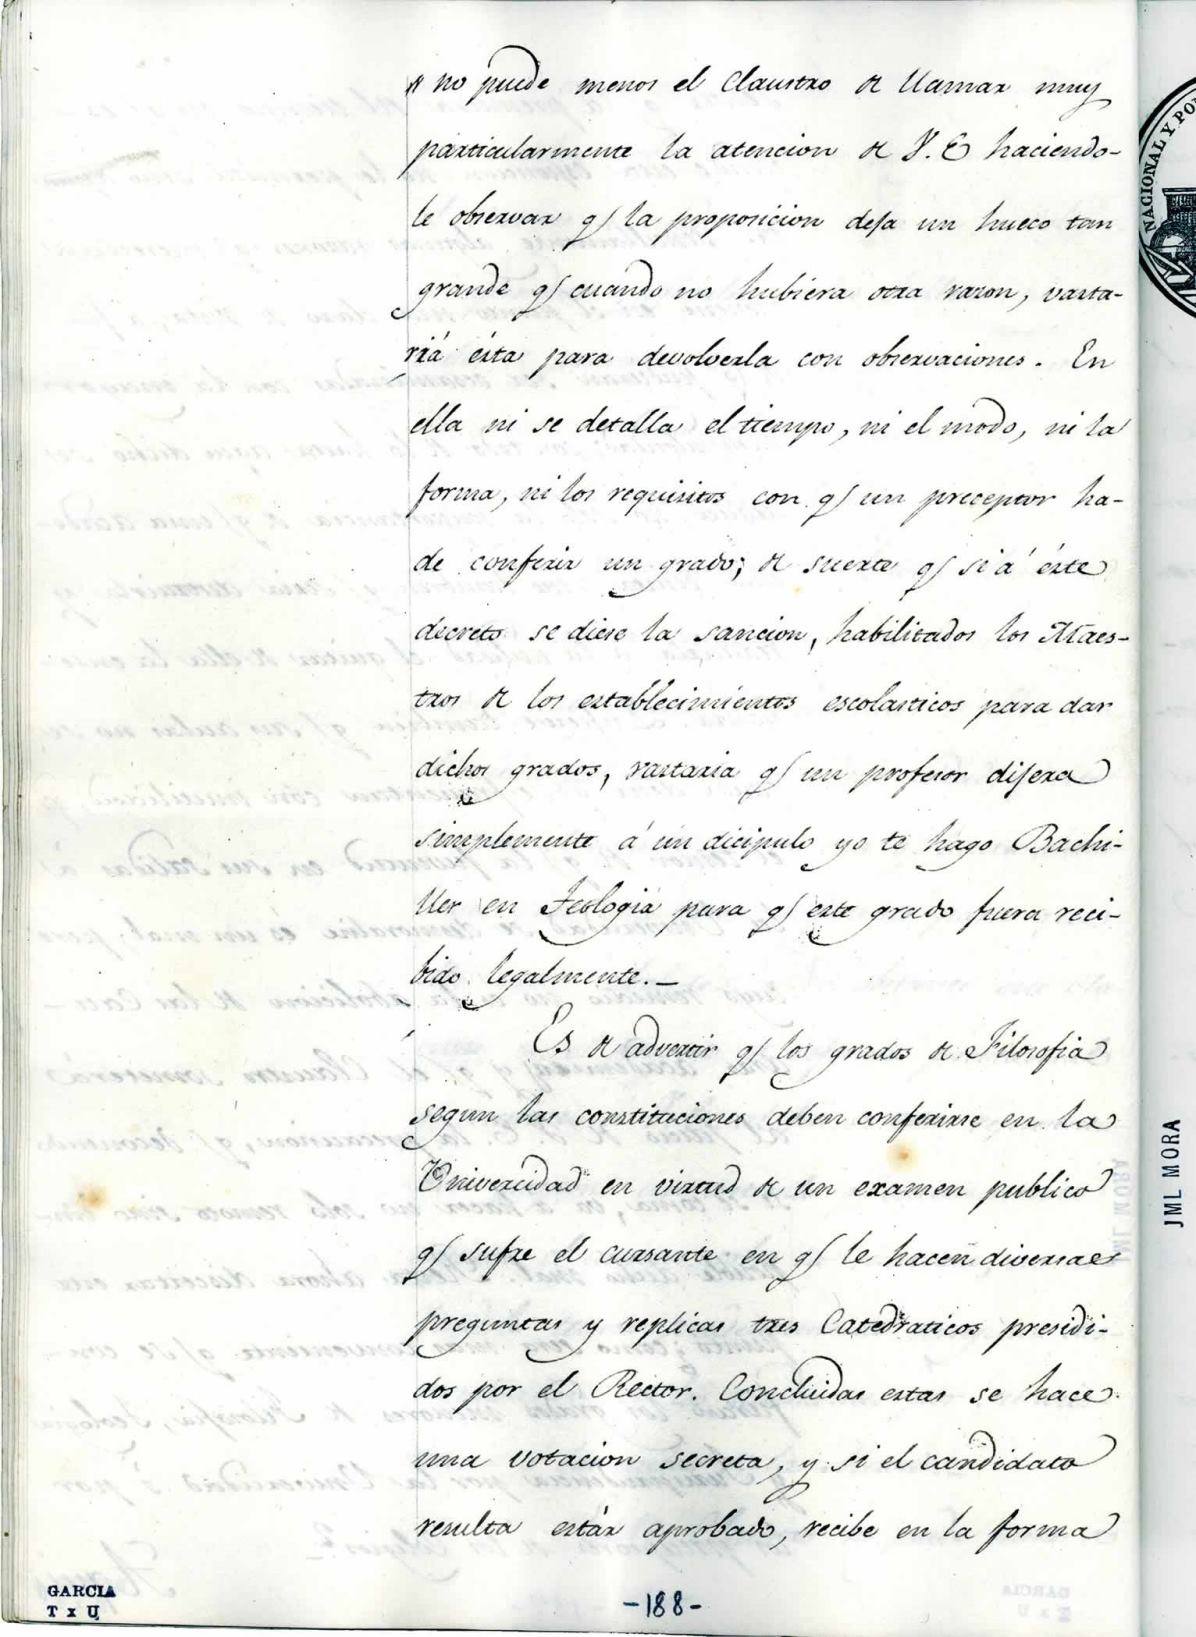 " no puede menos el Claustro de llamar muy
particularmente la atencion de V. E haciendo-
le observar q/ la proposicion deja un hueco tan
grande q/ cuando no hubiera otra razon, vasta-
riá ésta para devolverla con observaciones. En
ella ni se detalla el tiempo, ni el modo, ni la
forma, ni los requisitos con q/ un preceptor ha-
de conferir un grado; de suerte q/ si á éste
decreto se diese la sancion, habilitados los Maes-
tros de los establecimientos escolasticos para dar
dichos grados, vastaria q/ un profesor dijera
simplemente á un dicipulo yo te hago Bachi-
ller en Teologia para q/ este grado fuera reci-
bido legalmente.—
Es de advertir q/ los grados de Filosofia
segun las constituciones deben conferirse en la
Univercidad en virtud de un examen publico
q/ sufre el cursante en q/ le hacen diversas
preguntas y replicas tres Catedraticos presidi-
dos por el Rector. Concluidas estas se hace
una votacion secreta, y si el candidato
resulta estár aprobado, recibe en la forma
-188-
GARCIA
T x U
NACIONAL Y PO
JML MORA